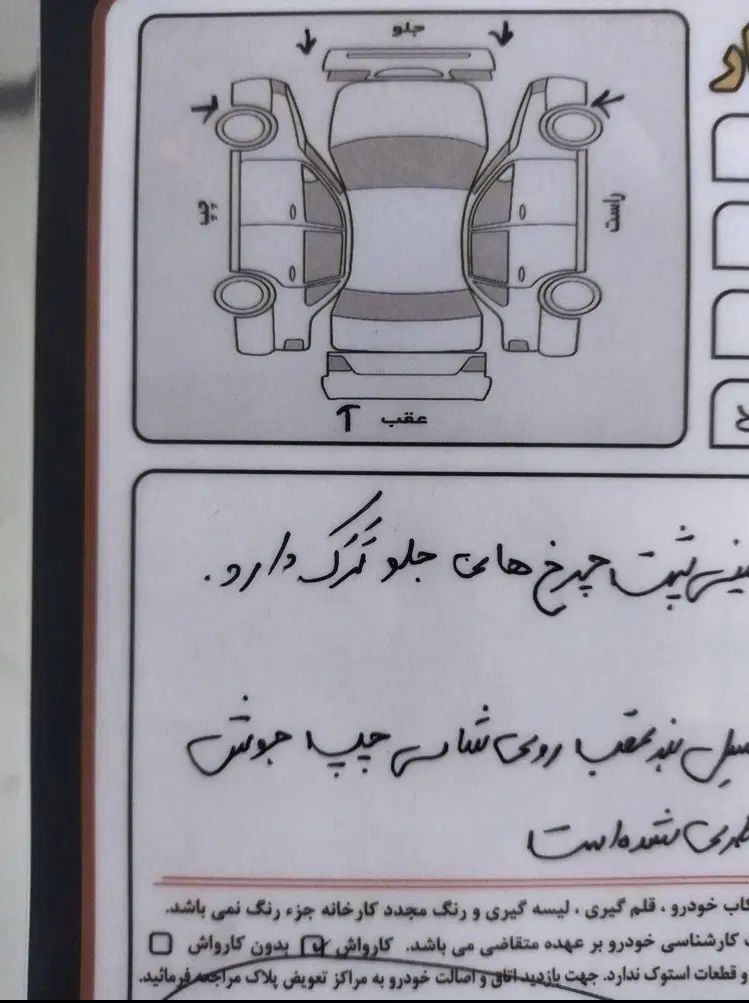 جلو
چپ
راست
عقب
پشت چرخ های جلو تَرَک دارد.
عقب روی شاسی چپ جوش
شده است
خودرو ، قلم گیری ، لیسه گیری و رنگ مجدد کارخانه جزء رنگ نمی باشد.
کارشناسی خودرو بر عهده متقاضی می باشد. کارواش بدون کارواش
و قطعات استوک ندارد. جهت بازدید اتاق و اصالت خودرو به مراکز تعویض پلاک مراجعه فرمائید.